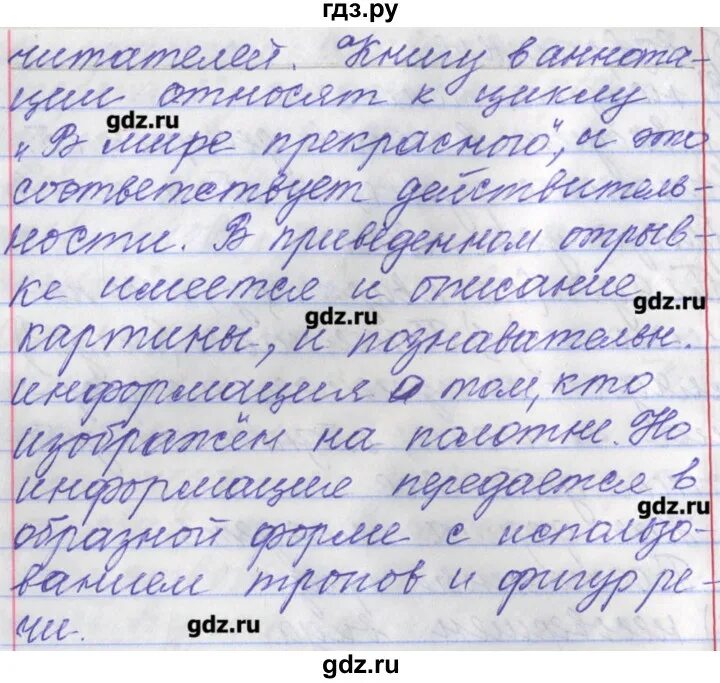 гдз.ру
читателей. Книгу в аннота-
ции относят к циклу
gdz.ru
„В мире прекрасного", и это
соответствует действитель-
ности. В приведенном отрыв-
ке имеется и описание
gdz.ru
gdz.ru
картины, и познавательн.
информация о том, кто
изображён на полотне. Но
информацие передается в
gdz.ru
образной форме с использо-
ванием тропов и фигур ре-
чи.
gdz.ru
gdz.ru